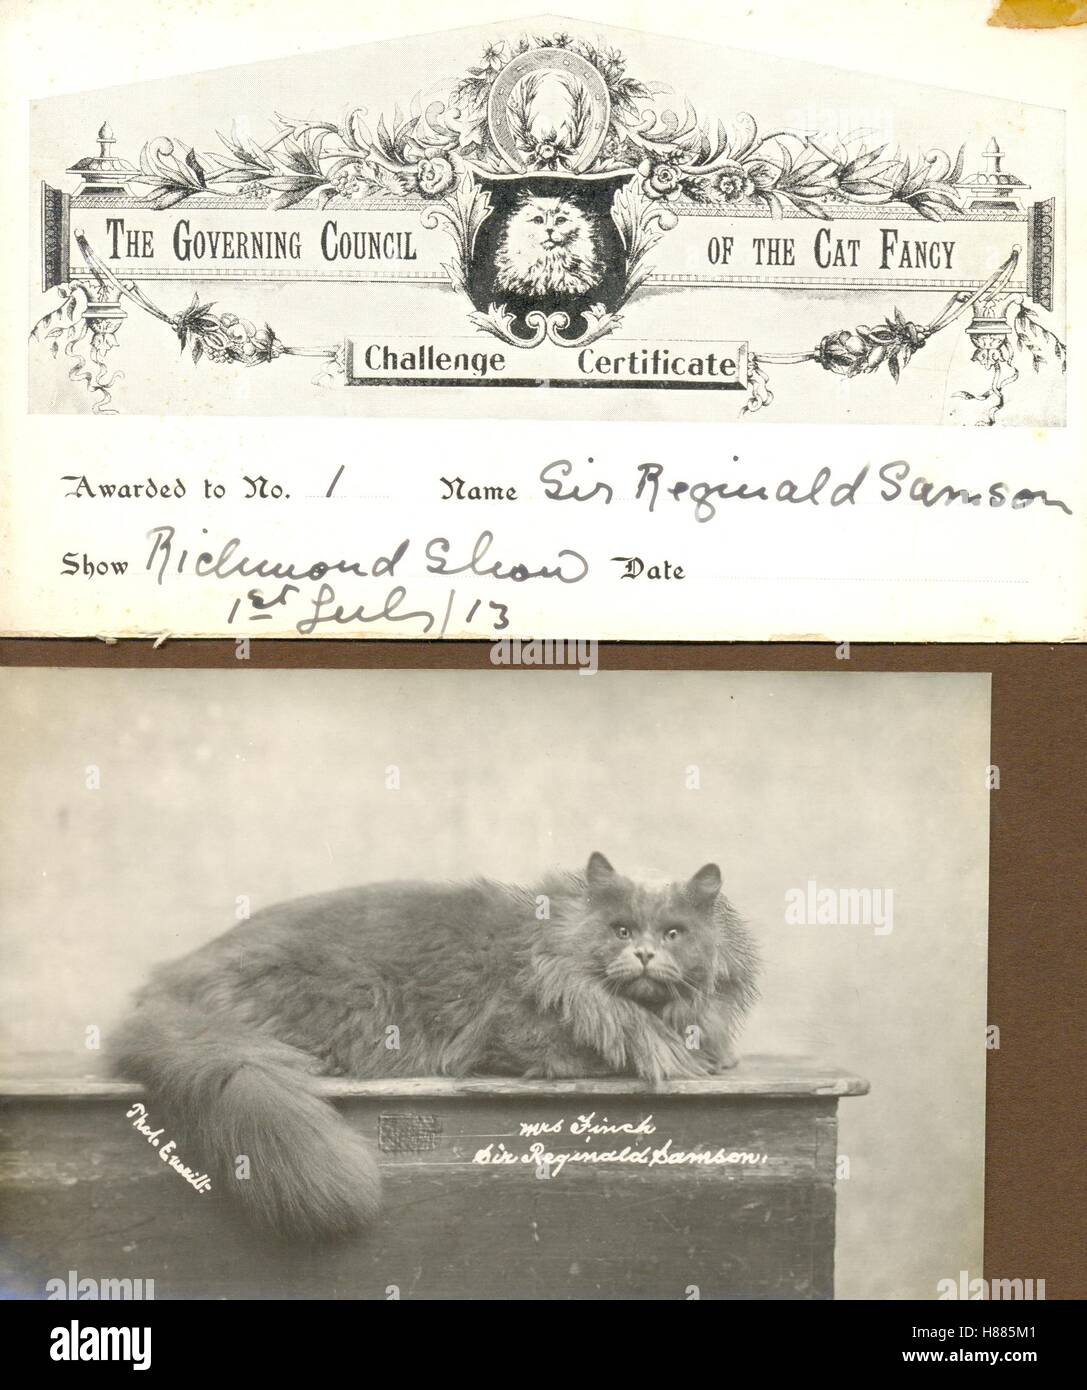 The Governing Council of the Cat Fancy
Challenge Certificate
Awarded to No. 1 Name Sir Reginald Samson
Show Richmond Show Date
1st July/13
Mrs Finch
Sir Reginald Samson.
Phot.
a alamy stock photo
alamy
Image ID: H885M1
www.alamy.com